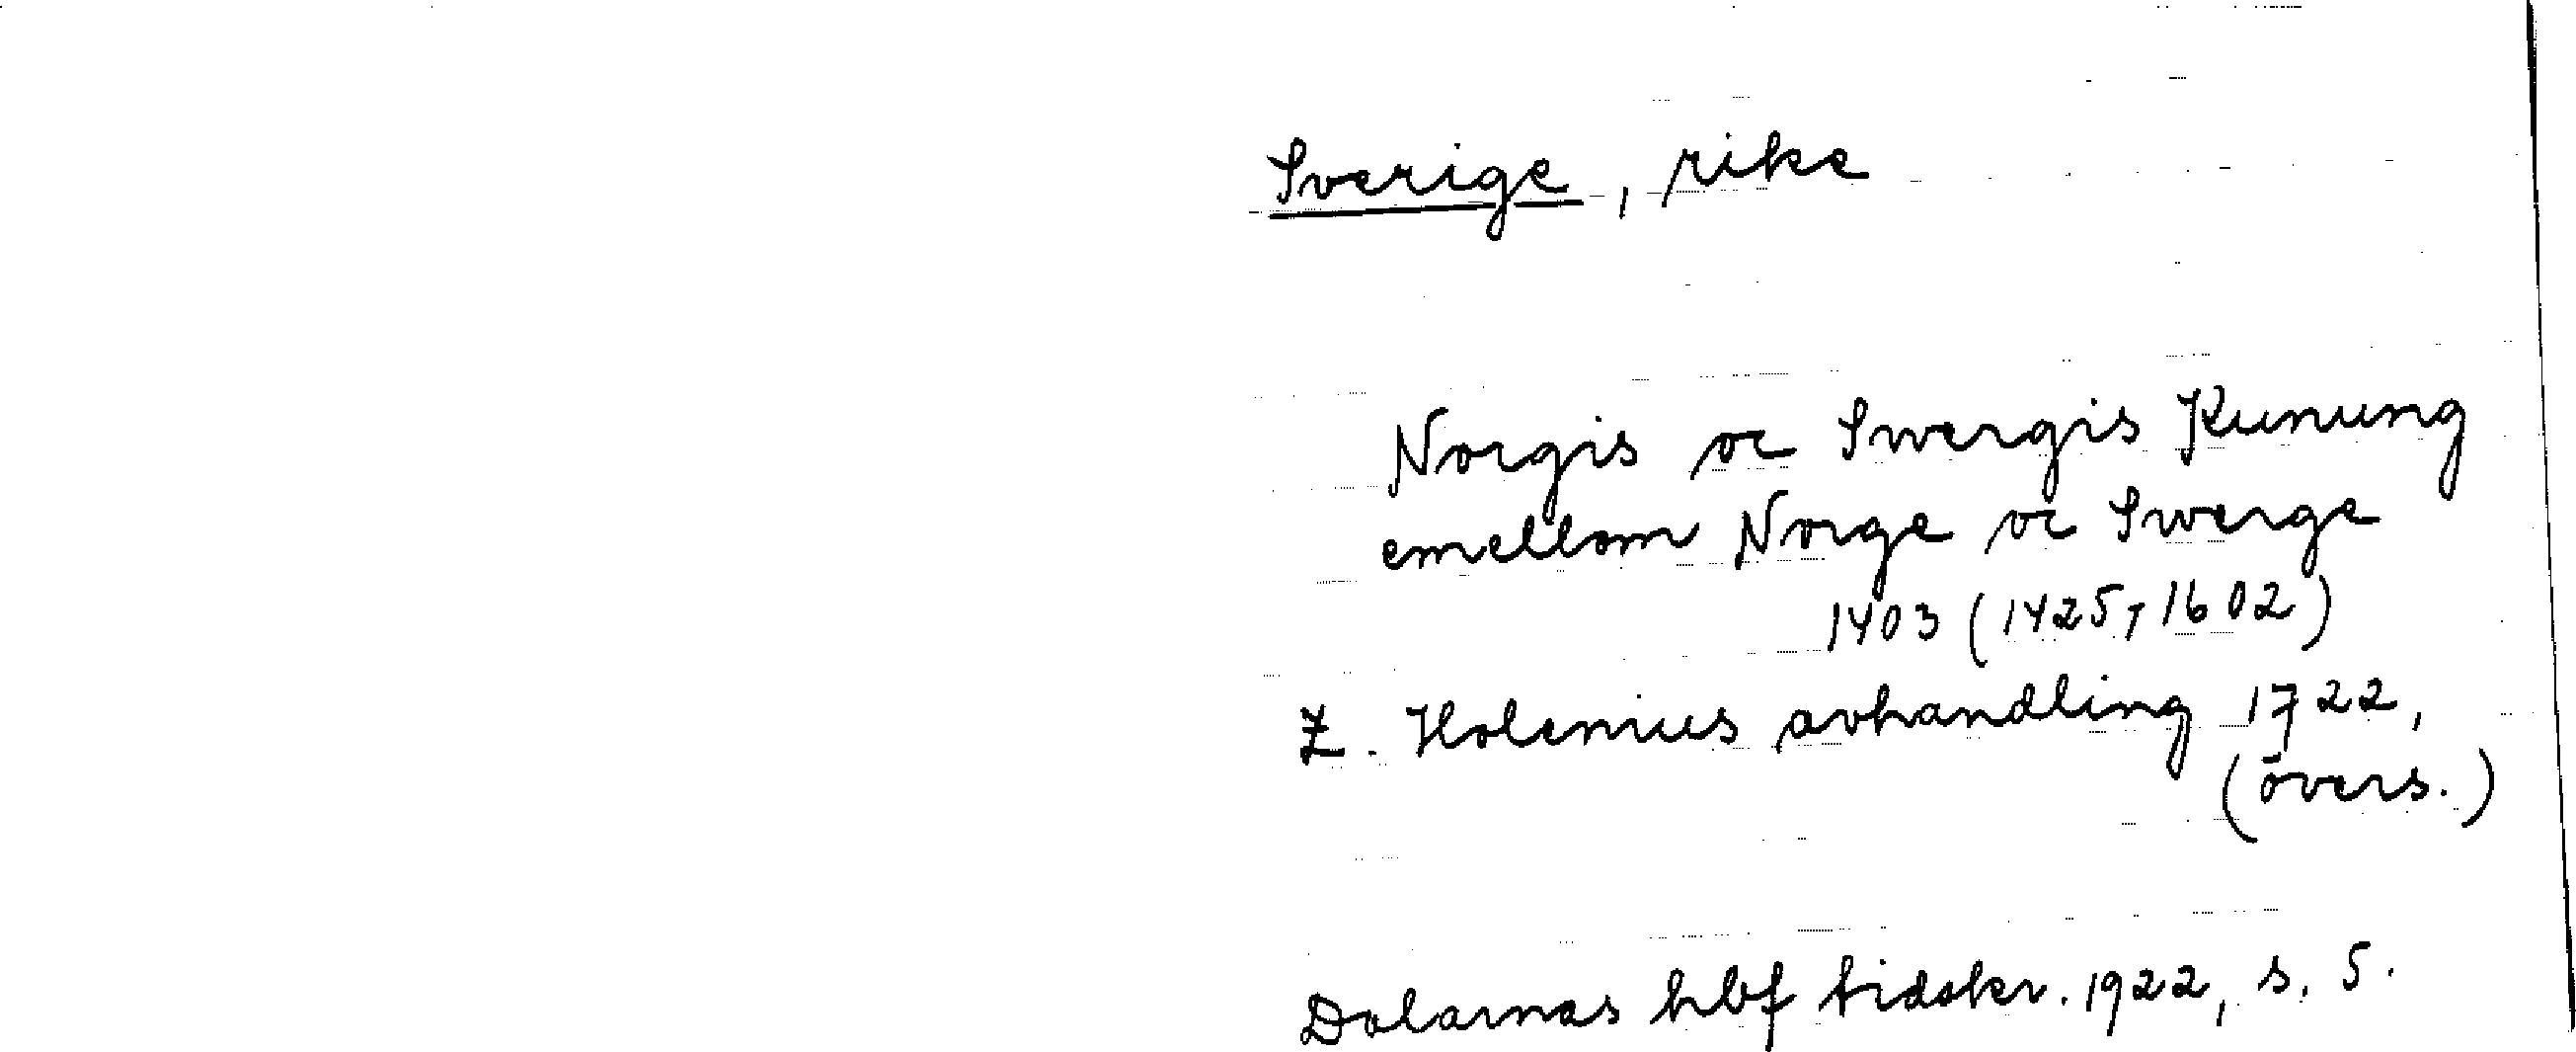 Sverige, rike
Norgis oc Swergis Kunung
emellom Norge oc Swerge
1403 (1425, 1602)
Z. Holenius avhandling 1722,
(övers.)
Dalarnas hbf tidskr. 1922, s. 5.